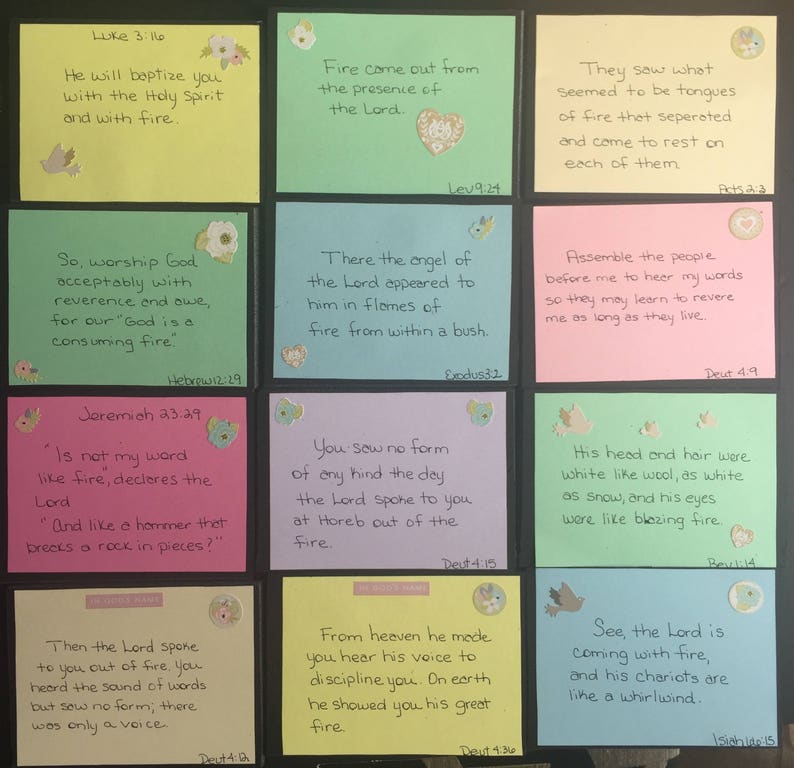 Luke 3:16
He will baptize you
with the Holy Spirit
and with fire.
Fire came out from
the presence of
the Lord.
Lev 9:24
They saw what
seemed to be tongues
of fire that seperated
and came to rest on
each of them.
Acts 2:3
So, worship God
acceptably with
reverence and awe,
for our "God is a
consuming fire."
Hebrew 12:29
There the angel of
the Lord appeared to
him in flames of
fire from within a bush.
Exodus 3:2
Assemble the people
before me to hear my words
so they may learn to revere
me as long as they live.
Deut 4:9
Jeremiah 23:29
"Is not my word
like fire", declares the
Lord
"And like a hammer that
breaks a rock in pieces?"
You saw no form
of any kind the day
the Lord spoke to you
at Horeb out of the
fire.
Deut 4:15
His head and hair were
white like wool, as white
as snow, and his eyes
were like blazing fire.
Rev 1:14
IN GOD'S NAME
Then the Lord spoke
to you out of fire. You
heard the sound of words
but saw no form; there
was only a voice.
Deut 4:12
IN GOD'S NAME
From heaven he made
you hear his voice to
discipline you. On earth
he showed you his great
fire.
Deut 4:36
See, the Lord is
coming with fire,
and his chariots are
like a whirlwind.
Isiah 66:15